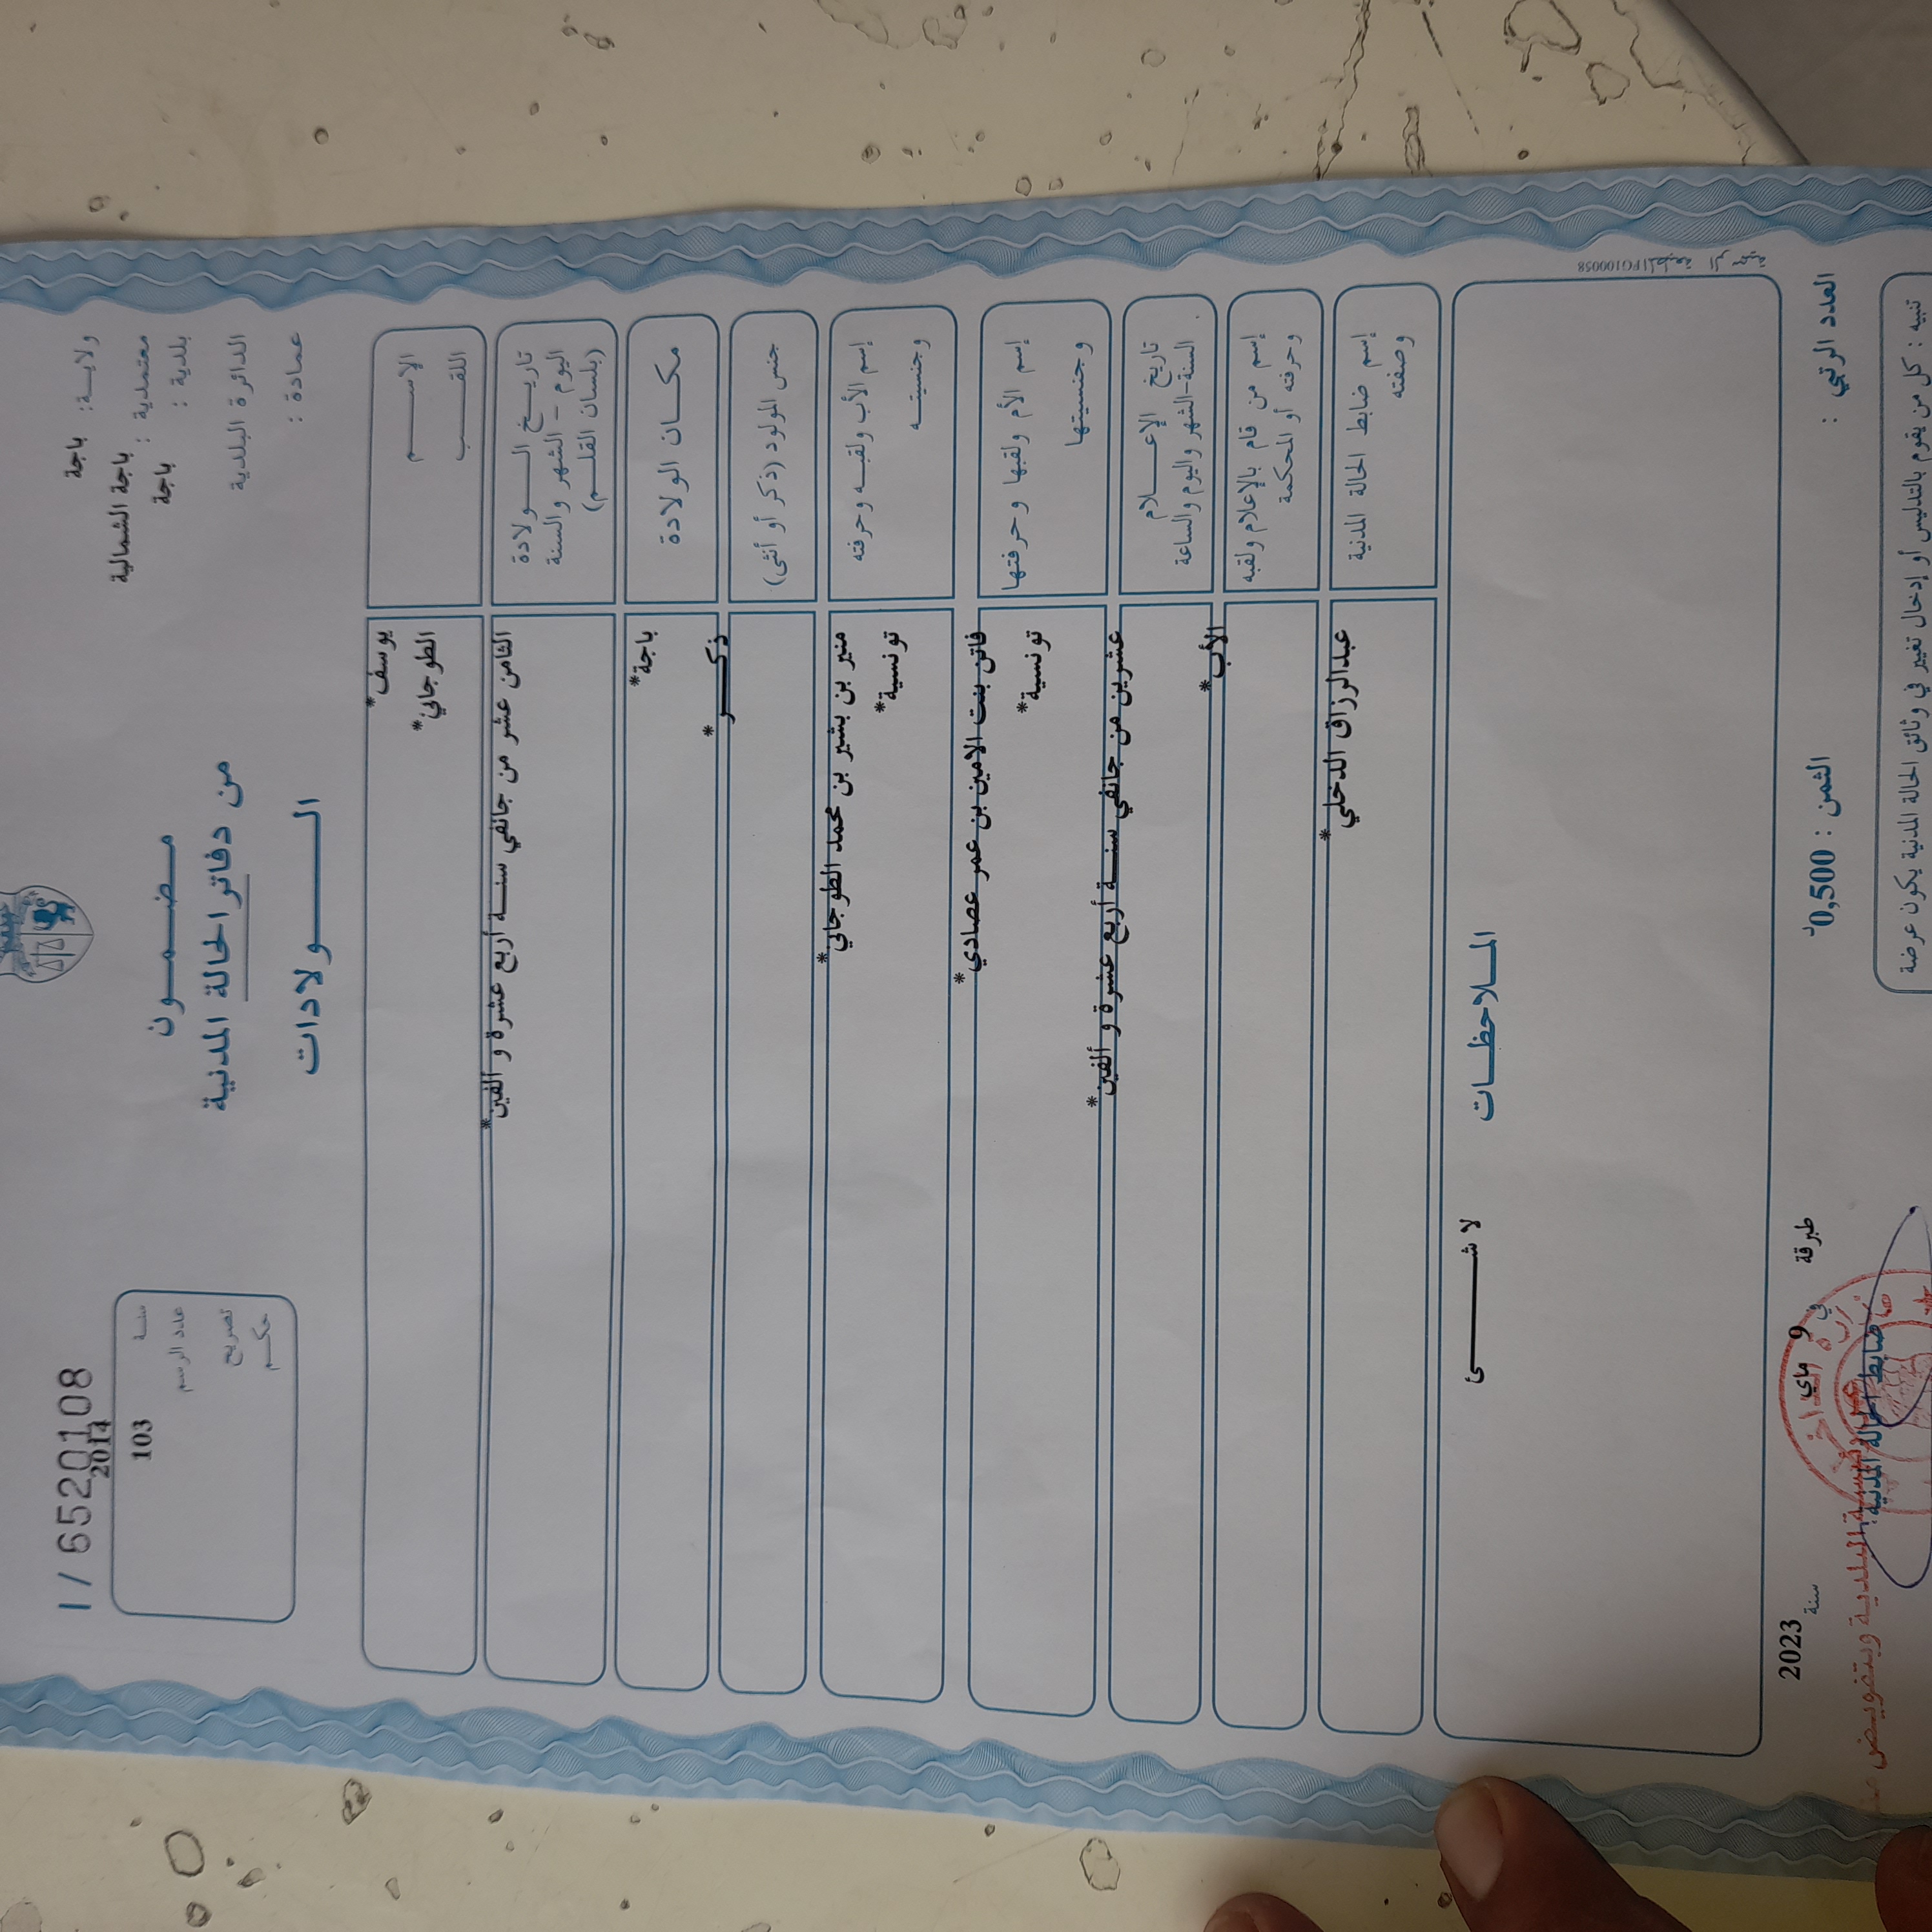 1 / 65220108
ولايـة: باجة
معتمدية : باجة الشمالية
بلدية : باجة
الدائرة البلدية
عمادة :
مـضـمـون
من دفاتر الحالة المدنية
الـولادات
سنـة 2014
عدد الرسم 103
تصريح
حكـم
الإسـم يوسف*
اللقـب الطوجاني*
تاريـخ الـولادة الثامن عشر من جانفي سنـة أربع عشرة و ألفين*
اليوم - الشهر والسنة
(بلسان القلـم)
مكـان الولادة باجة*
جنس المولود (ذكر أو أنثى) ذكـر*
إسم الأب ولقبـه وحرفته منير بن بشير بن محمد الطوجاني*
وجنسيتـه تونسية*
إسم الأم ولقبها وحرفتها فاتن بنت الامين بن عمر عصادي*
وجنسيتها تونسية*
تاريخ الإعـلام عشرين من جانفي سنـة أربع عشرة و ألفين*
السنة-الشهر واليوم والساعة
إسم من قام بالإعلام ولقبه الأب*
وحرفته أو المحكمة
إسم ضابط الحالة المدنية عبدالرزاق الدخلي*
وصفته
المـلاحظـات
لا شـئ
PG100058 المطبعة الرسمية
العدد الرتبي :
الثمن : 0,500د
طبرقة في 9 ماي سنة 2023
ضابط الحالة المدنية
البلدية وبتفويض
تنبيه : كل من يقوم بالتدليس أو إدخال تغيير في وثائق الحالة المدنية يكون عرضة